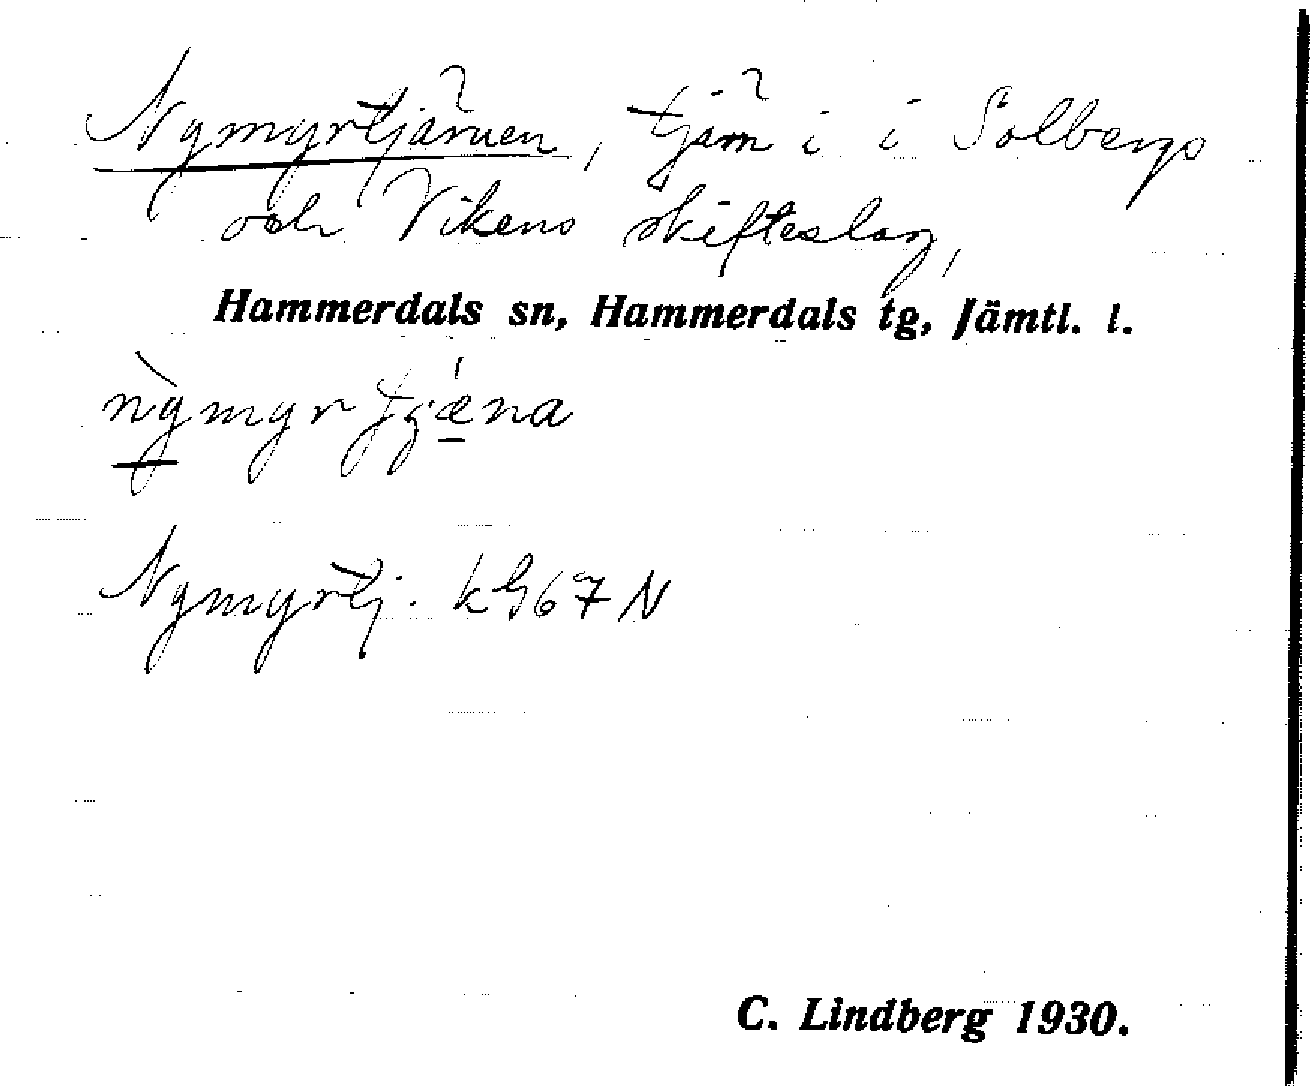 Nymyrtjärnen, tjärn i i Solbergs
och Vikens skifteslag,
Hammerdals sn, Hammerdals tg, Jämtl. l.
nỳmyrtjǽ̲na
Nymyrtj. kG67N
C. Lindberg 1930.